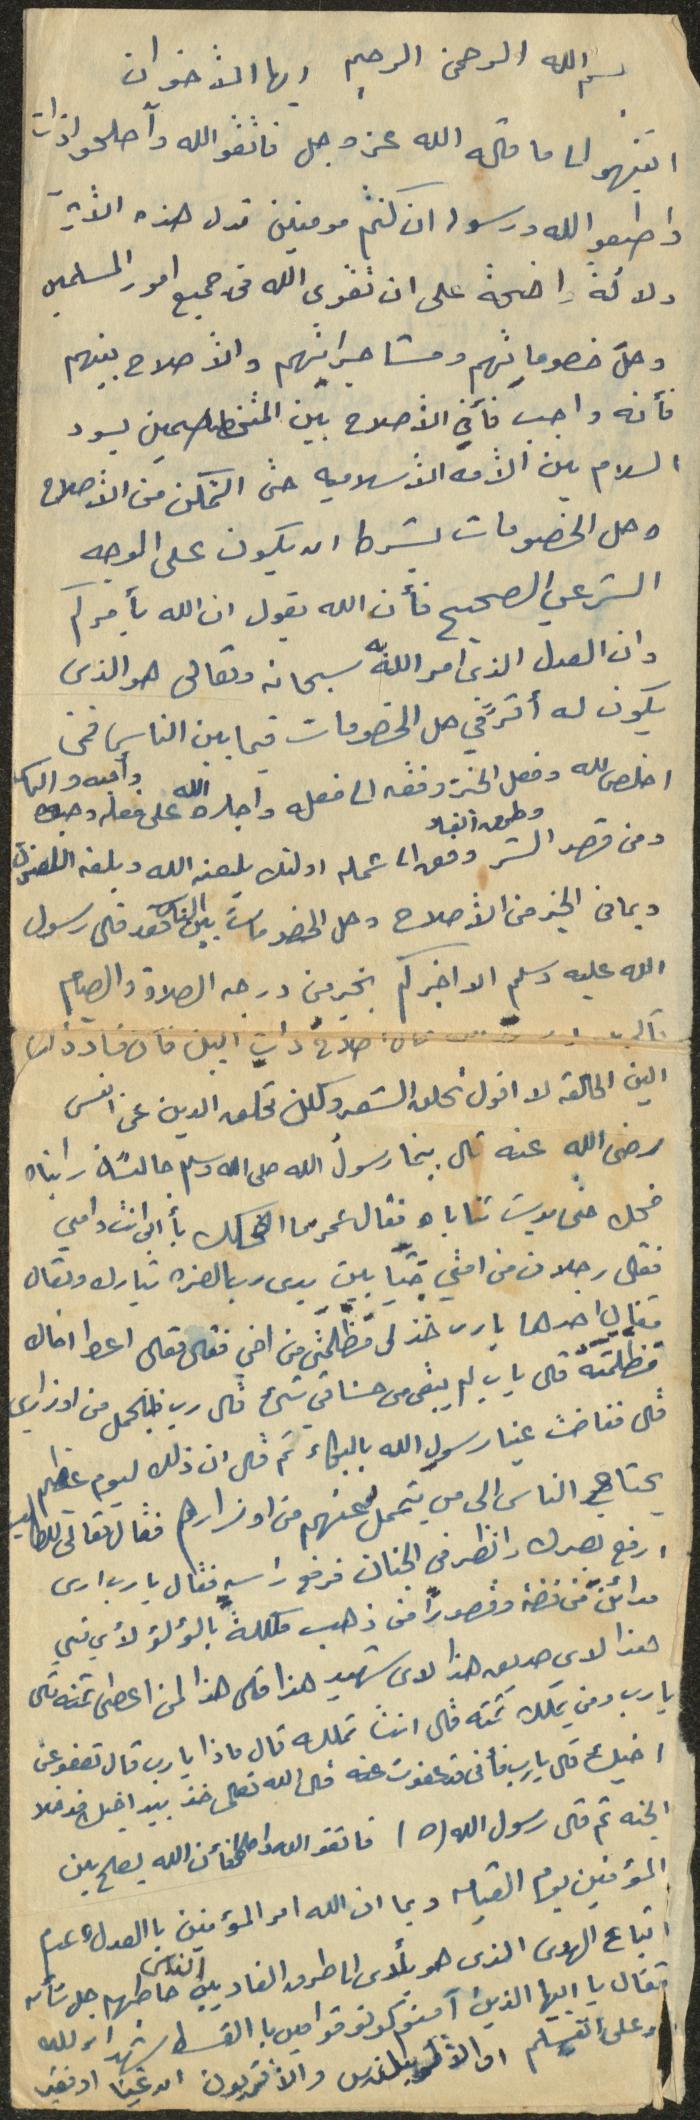 بسم الله الرحمن الرحيم ايها الأخوان
انتبهو لما قاله الله عز وجل فاتقو الله وأصلحوا ذات
واطيعو الله ورسوله ان كنتم مومنين تدل هذه الأية
دلالة واضحة على ان تقوى الله في جميع امور المسلمين
وحل خصوماتهم ومشاجراتهم والأصلاح بينهم
فأنه واجب فأن الأصلاح بين المتخاصمين يسود
السلام بين الأمه الأسلاميه حتى التمكن من الأصلاح
وحل الخصومات بشرط ان يكون على الوجه
الشرعي الصحيح فأن الله يقول ان الله يأمركم
وان العدل الذي امر الله به سبحانه وتعالى هو الذي
يكون له أثر في حل الخصومات فيما بين الناس فمن
اخلص لله وفعل الخير وفقه الى فعله واجاره الله على فعله
ومن قصد الشر وفق الى شمله اولئك يلعنه الله ويلعنه اللاعنون
وبما في الخير من الأصلاح وحل الخصومات بين الناس فقد قال رسول
الله عليه وسلم الا اخبركم بخير من درجه الصلاة والصيام
اصلاح ذات البين فأن فساد ذات
البين الحالقه لا اقول تحلق الشعر ولكن تحلق الدين عن انس
رضي الله عنه قال بينما رسول الله صلى الله وسلم جالسًا اذ رايناه
ضحك حتى بدت ثناياه فقال عمر ما اضحكك بأبي انت وامي
فقال رجلان من امتي جثيا بين يدي رب العزه تبارك وتعالى
فقال احدهما يارب خذ لي مظلمتي من اخي فقال تعالى اعط اخاك
مظلمته قال يارب لم يبقى من حسناتي شيء قال رب فليحمل من اوزاري
قال ففاضت عينا رسول الله بالبكاء ثم قال ان ذلك ليوم عظيم
يحتاج الناس الى من يتحمل عنهم من اوزارهم فقال تعالى للطالب
ارفع بصرك وانظر في الجنان فرفع راسه فقال يارب ارى
مدائن من فضة وقصورًا من ذهب مكللة بالؤلؤ لأي نبي
هذا لاي صديق هذا لاي شهيد هذا قال هذا لمن اعطى ثمنه قال
يارب ومن يملك ثمنه قال انت تملكه قال ماذا يارب قال تعفو عن
اخيك قال يارب فأني قد عفوت عنه قال الله تعالى خذ بيد اخيك فدخلا
الجنه ثم قال رسول الله (ص) فاتقو الله واصلحو فأن الله يصلح بين
المؤمنين يوم القيامه وبما ان الله امر المؤمنين باالعدل
اتباع الهوى الذي هو يأدي الى طرق الفساد بين الناس خاطبهم جل شأنه
فقال يا ايها الذين آمنو كونو قوامين باالقسط شهداء لله
ولو على انفسكم او الوالدين والأقربون ان غنيا او فقيرا